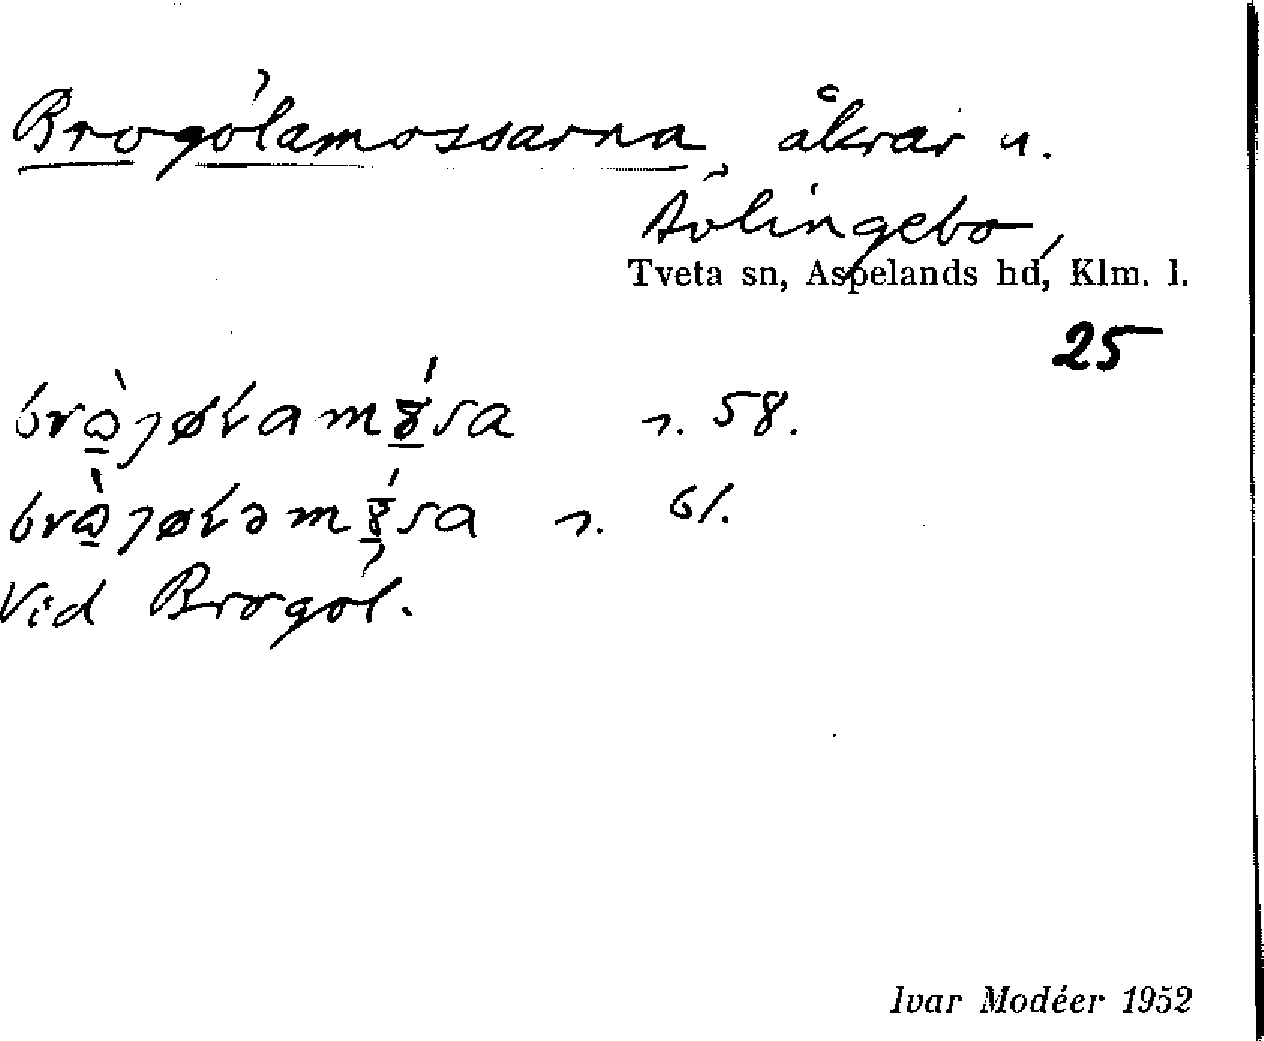 Brogölamossarna, åkrar u.
Åvlingebo,
Tveta sn, Aspelands hd, Klm. l.
25
58.
61.
Vid Brogöl.
Ivar Modéer 1952